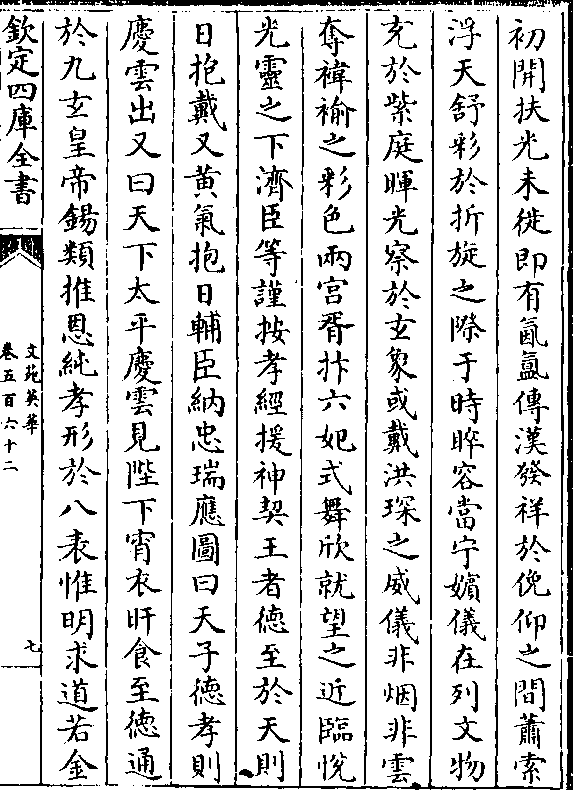 初開扶光未徙即有氤氲傳漢發祥於俛仰之間蕭索
浮天舒彩於折旋之際于時睟容當宁嬪儀在列文物
充於紫庭暉光察於玄象或戴洪琛之威儀非烟非雲
奪褘褕之彩色兩宮胥抃六妃式舞欣就望之近臨悅
光靈之下濟臣等謹按孝經援神契王者德至於天則
日抱戴又黄氣抱日輔臣納忠瑞應圖曰天子德孝則
慶雲出又曰天下太平慶雲見陛下宵衣旰食至德通
於九玄皇帝錫類推恩純孝形於八表惟明求道若金
欽定四庫全書
文苑英華
卷五百六十二
七